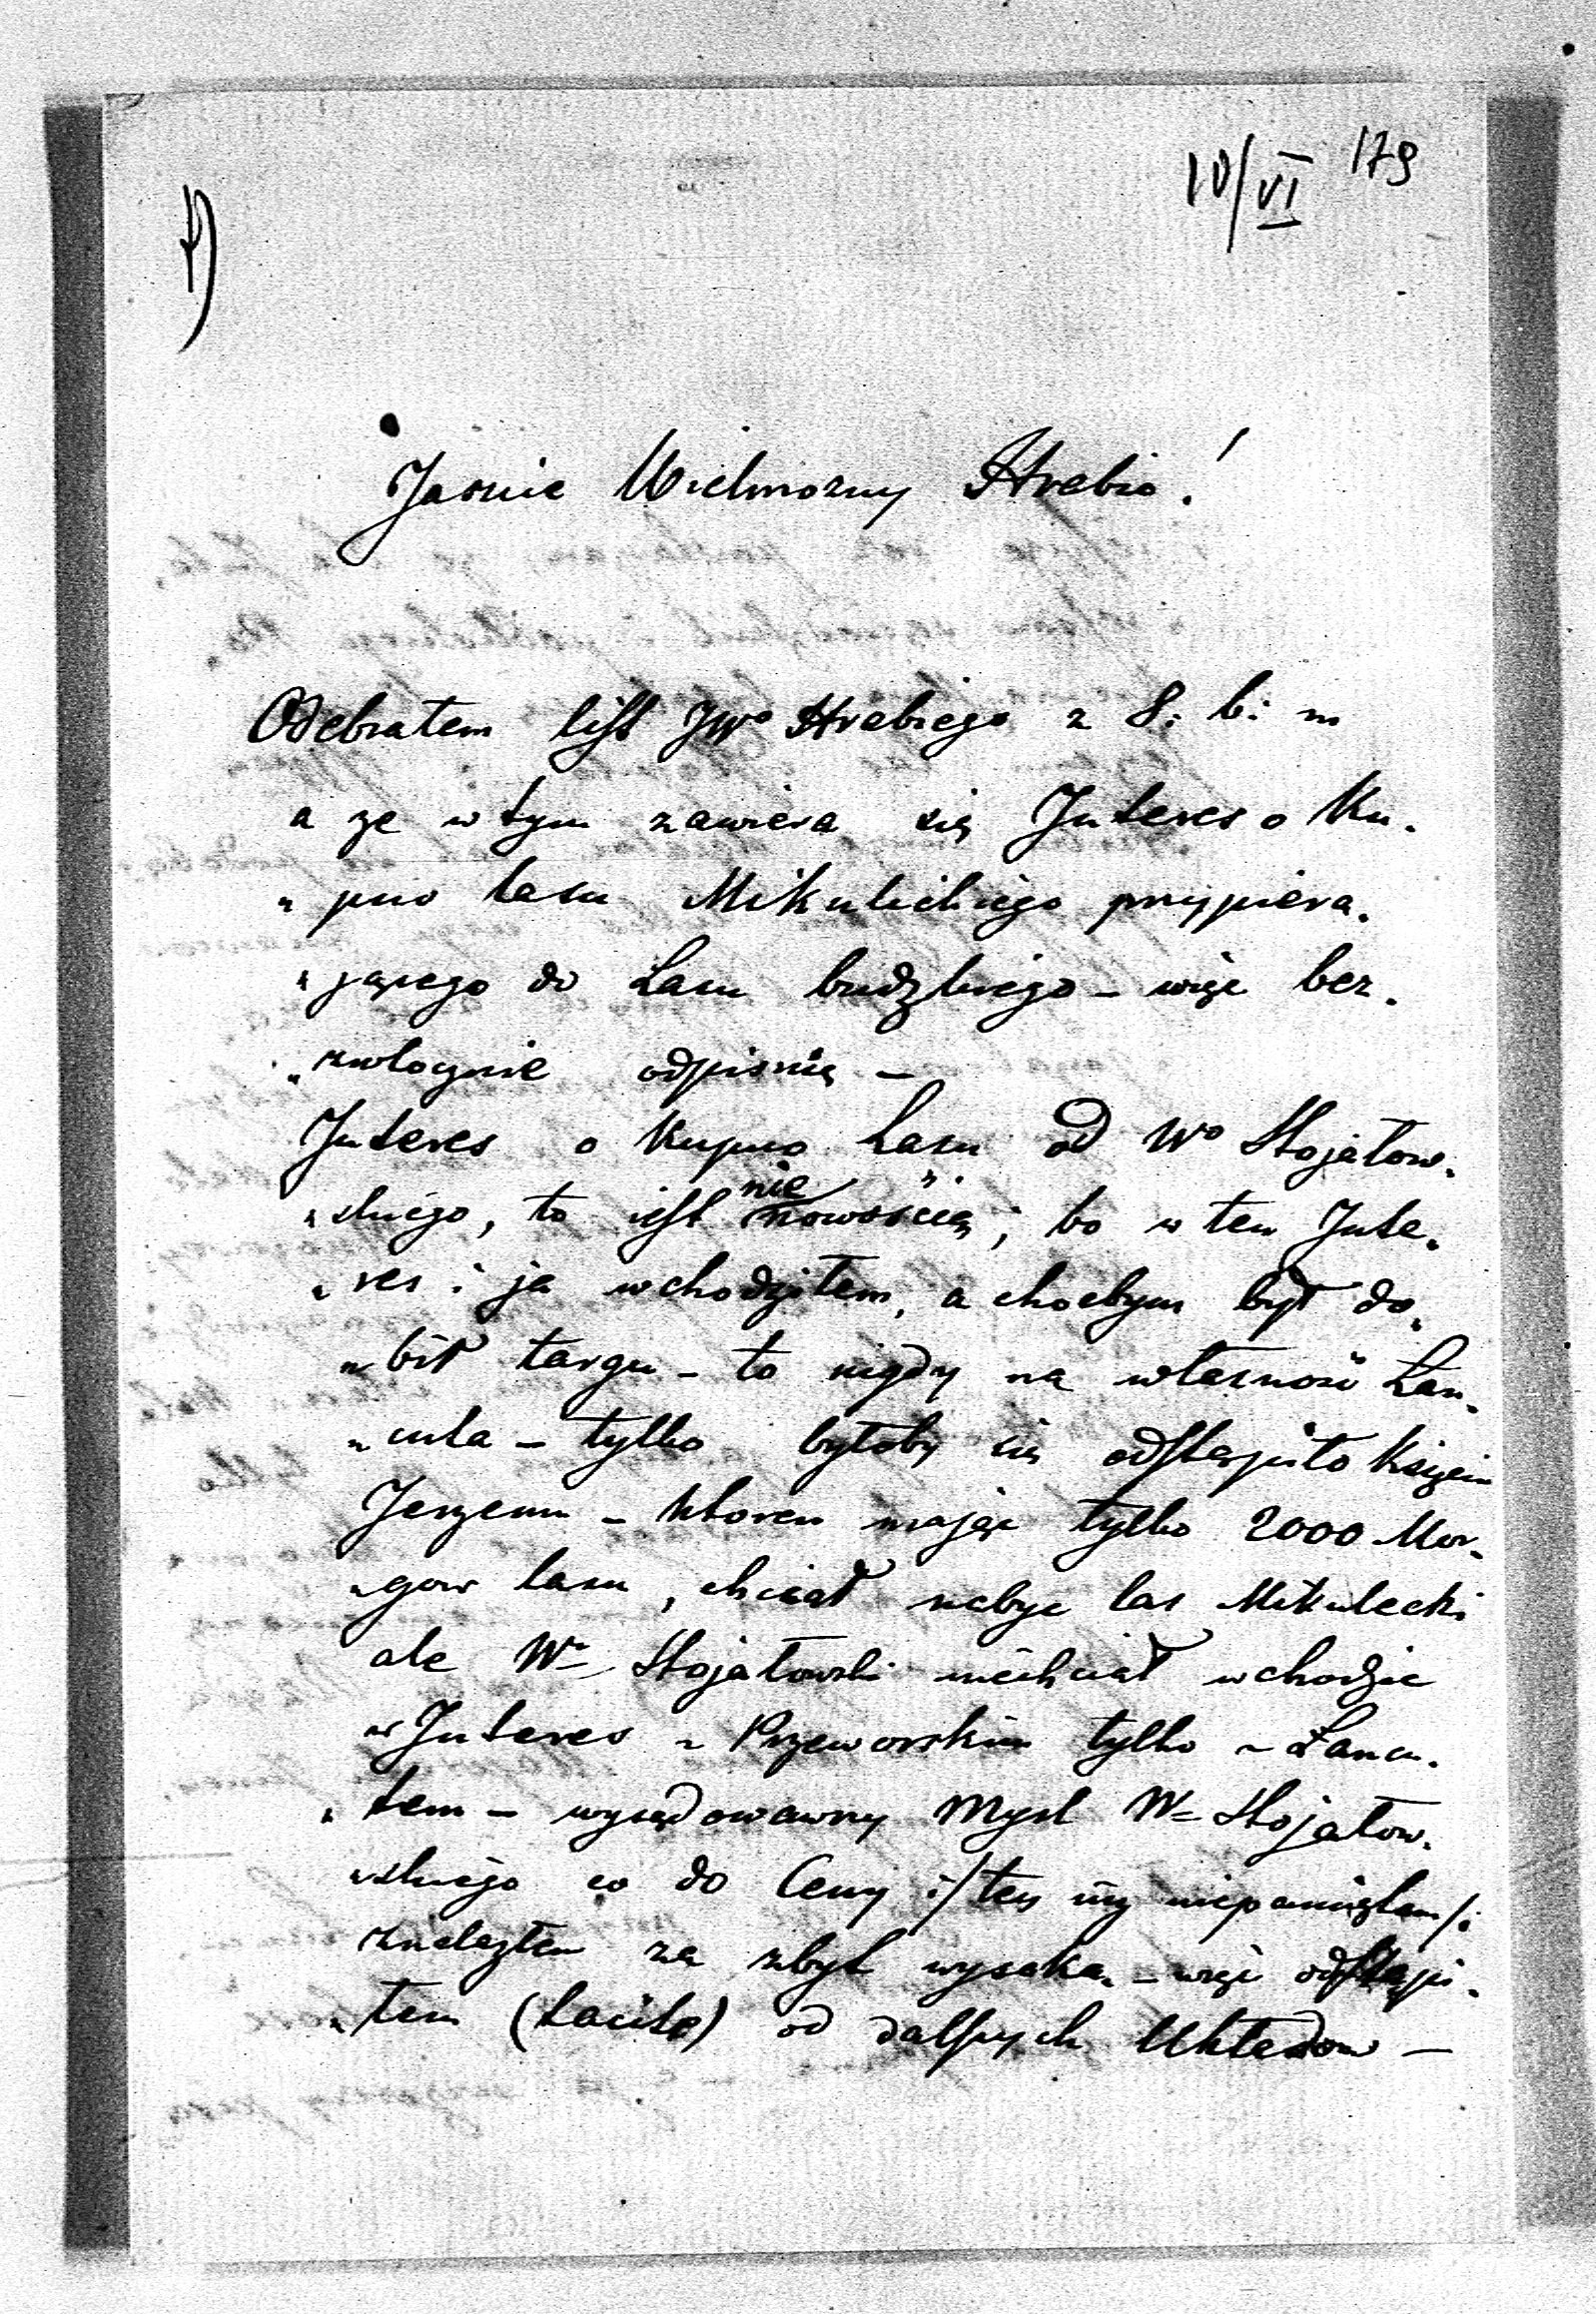 10/VI 179
Jasnie Wielmozny Hrabio!
Odebrałem list JWo Hrabiego z 8: b: m
a ze w tym zawiera się Interes o Ku„
„pno lasu Mikulickiego przypiera„
„jącego do Lasu budzkiego – więc bez„
„zwłocznie odpisuię –
Interes o Kupno Lasu od Wo Stojałow„
„skiego, to iest nie nowością; bo w ten Inte„
„res i ja wchodziłem, a chocbym był do„
„bił targu – to nigdy na własność Łan„
„cuta – tylko byłoby się odstąpiło Księciu
Jerzemu – Ktoren mając tylko 2000 Mor„
„gow lasu, chciał nabyc las Mikulecki
ale Wn Stojałowski niechciał wchodzic
w Interes z Przeworskim tylko z Łancu„
„tem – wysądowawny Mysl W= Stojałow„
„skiego co do Ceny :/ tey iuz niepamiętam /:
znalazłem za zbyt wysoką – więc odstąpi„
„łem (tacite) od dalszych Układow –